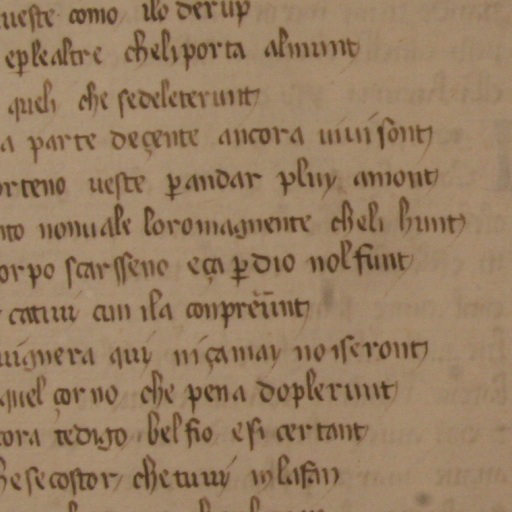 ueste como ilo derup
eple altre cheli porta almunt
queli che sedeleterunt
a parte deçente ancora uiui sont
rteno ueste p andar pluy amont
nto nonuale loro magnente cheli hunt
orpo scarsseno eça p dio nol funt
catiui cun ila conpreunt
uignera qui niçamai noiseront
quel çorno che pena doplerunt
ora tedigo bel fio esi certant
he se costor che tuiui in la fan